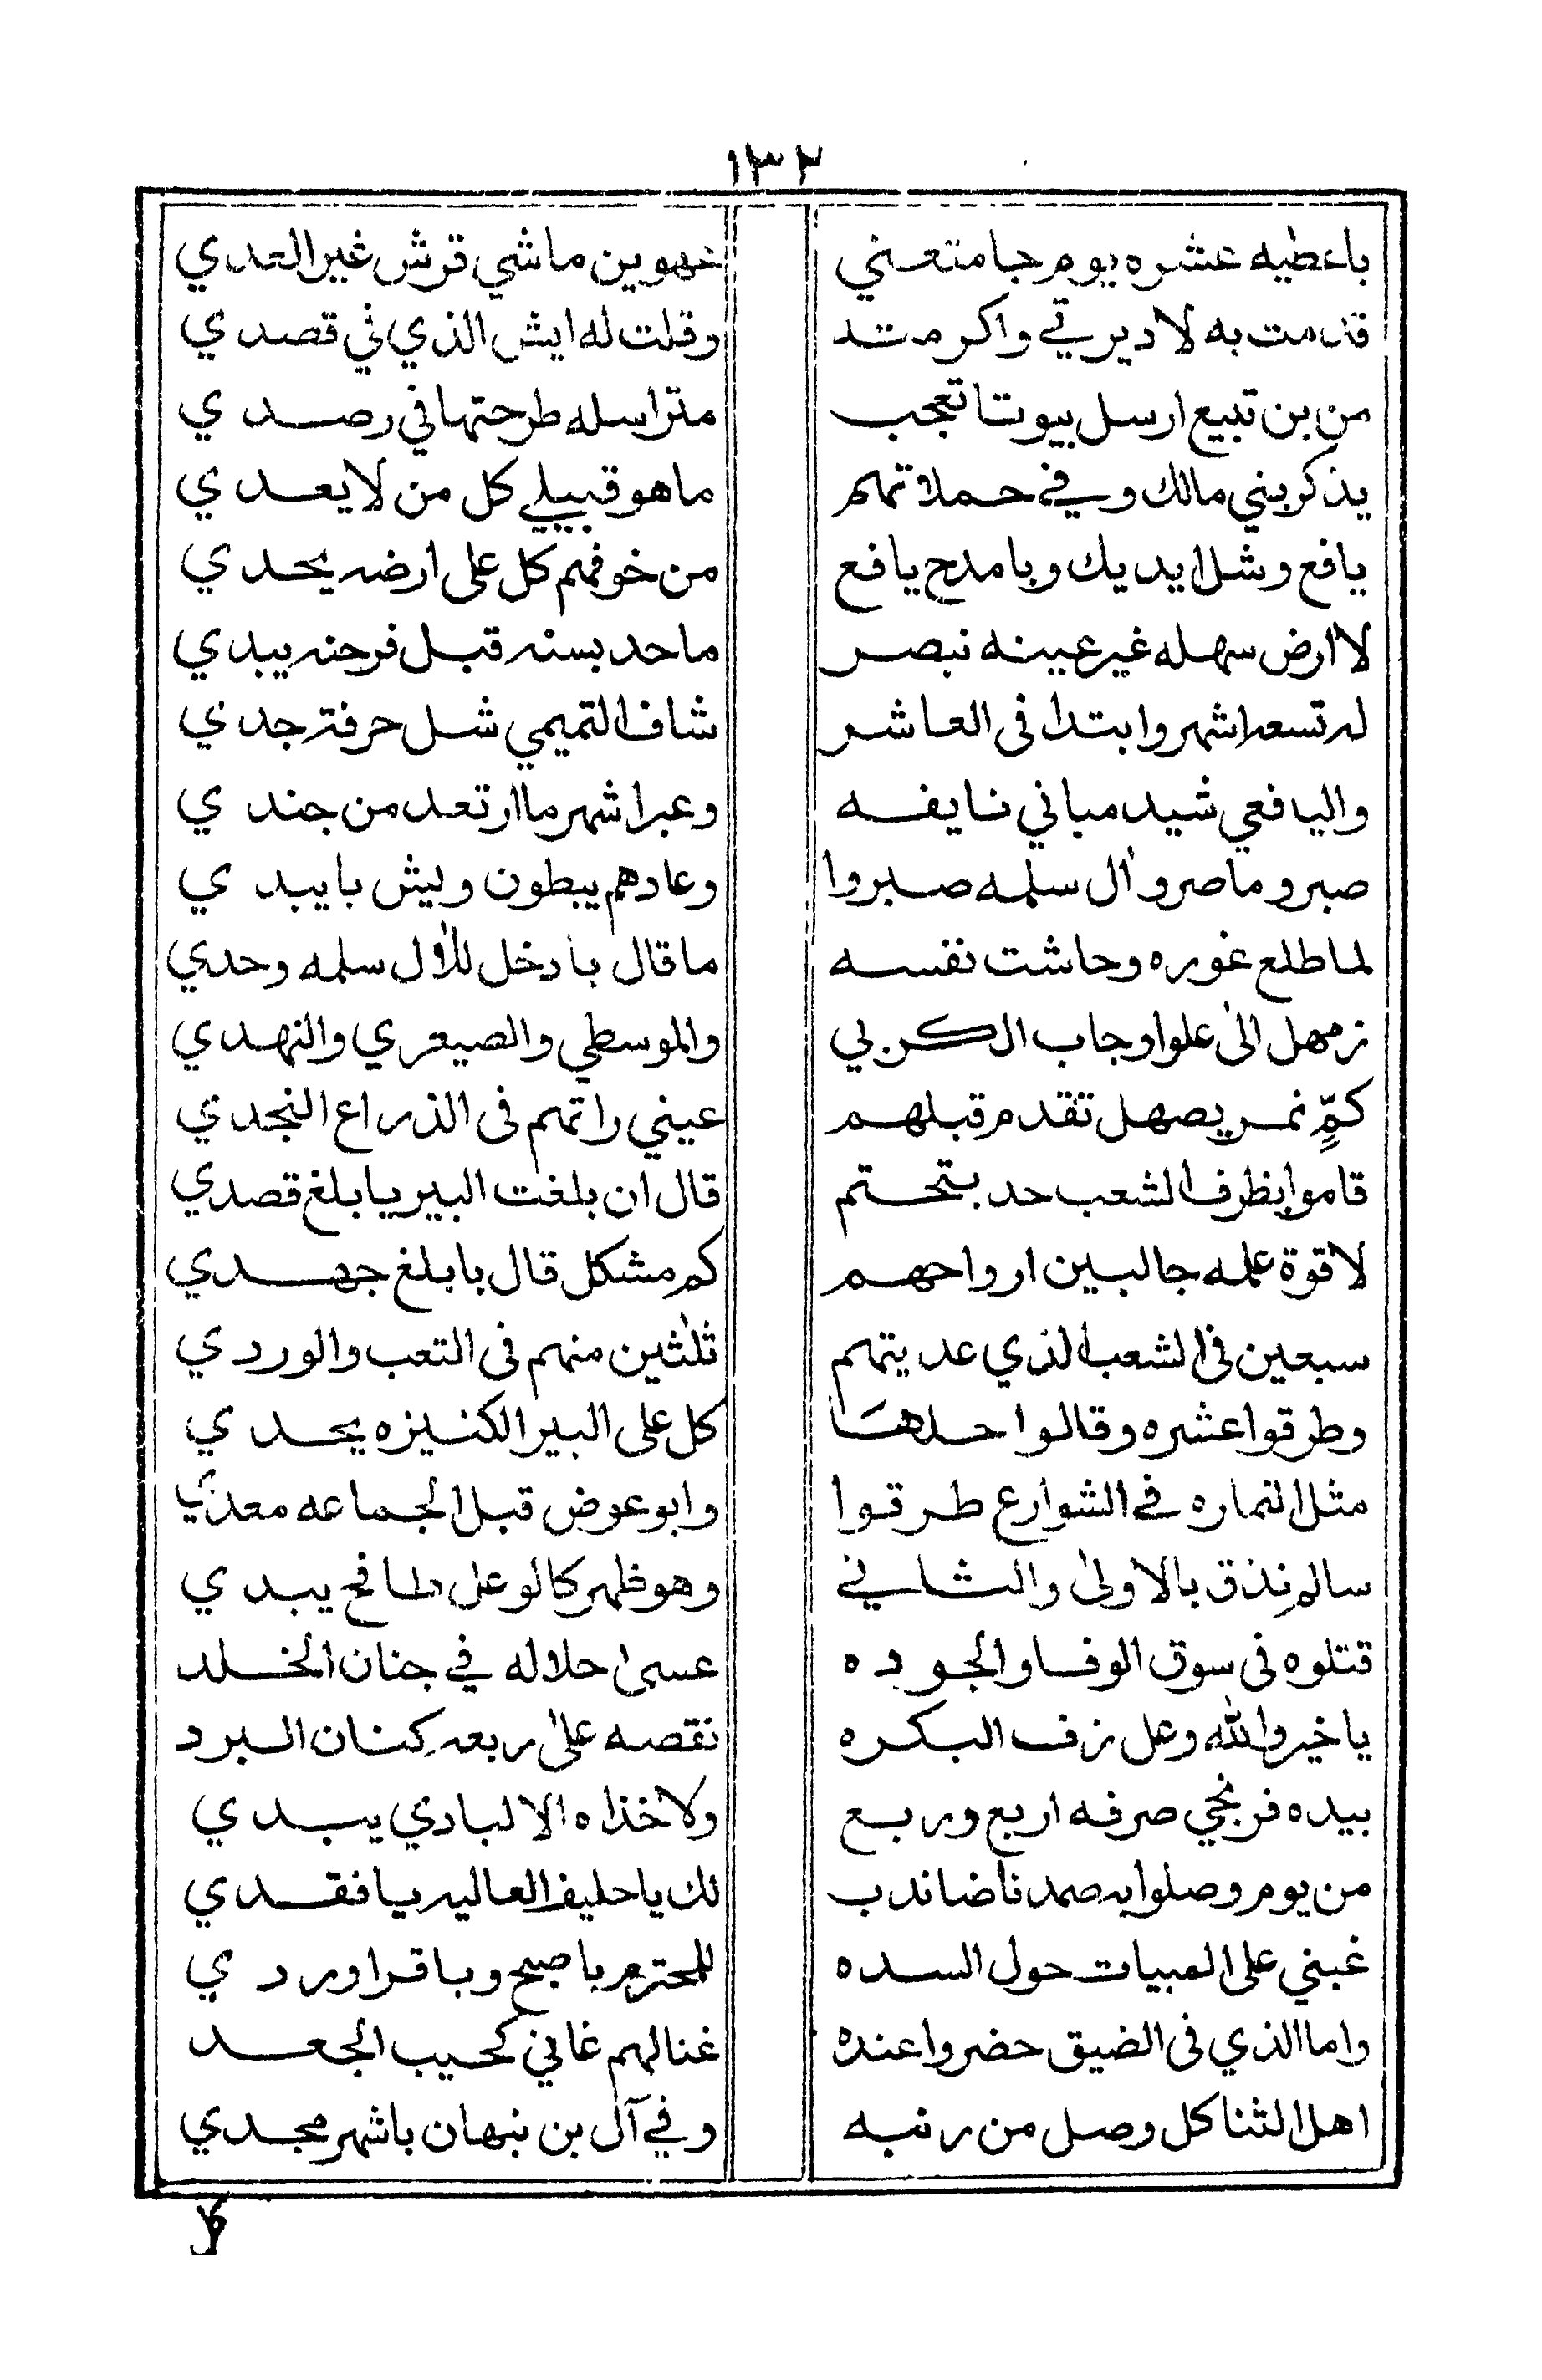 ١٣٢
باعطيه عشره يوم جا متعني عهوين ماشي قرش غير العدي
قدمت به لا ديرتي واكرمتد وقلت له ايش الذي في قصدي
من بن تبيع ارسل بيوتا تعجب متراسله طرحتها في رصدي
يذكر بني مالك وفي حملاتهم ما هو قبيلي كل من لا يعدي
يافع وشل ايديك وبا مدح يافع من خوفهم كل على ارضه يحدي
لا ارض سهله غير عينه نبصر ما حد بسنه قبل فرحنه يبدي
له تسعه اشهر وابتدا فى العاشر شاف التميمي شل حرفة جدي
واليافعي شيد مباني نايفه وعبر اشهر ما ارتعد من جندي
صبرو ما صرو آل سلمه صبروا وعادهم يبطون وليش بايبدي
لما طلع غوره وحاشت نفسه ما قال بادخل لآل سلمه وحدي
زمهل الى علوا وجاب الكربي والموسطي والصيعري والنهدي
كم نمر يصهل تقدم قبلهم عيني راتهم فى الذراع النجدي
قاموا بظرف الشعب حد بتحتم قال ان بلغت البير يا بلغ قصدي
لا قوة عمله جالبين ارواحهم كم مشكل قال بابلغ جهدي
سبعين في الشعب الذي عديتهم ثلثين منهم فى التعب والوردي
وطرقوا عشره وقالوا حلها كل على البير الكنيزه يحدي
مثل النماره في الشوارع طرقوا وابو عوض قبل الجماعه معدي
سالم نذق بالاولى والثاني وهو ظهر كالوعل طافح يبدي
قتلوه فى سوق الوفا والجوده عسى حلاله في جنان الخلد
يا خير والله وعل زف البكره نقصه على ربعه كنان البرد
بيده فرنجي صرفه اربع وربع ولا خذاه الا لبادي يبدي
من يوم وصلوا به صمدنا ضاندب لك يا حليف العاليه يا فقدي
غبني على العبيات حول السده للمحترم با صبح وبا قرا وردي
واما الذي فى الضيق حضروا عنده غنا لهم غاني كحيب الجعد
اهل الثنا كل وصل من رتبه وفي آل بن نبهان باشهر مجدي